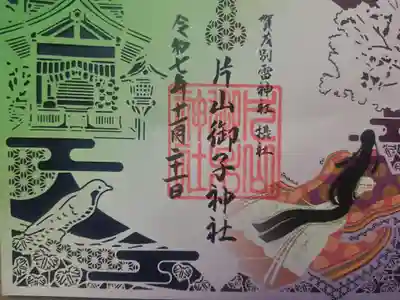 賀茂別雷神社 摂社
片山御子神社
片山御子神社
令和七年十一月二十二日